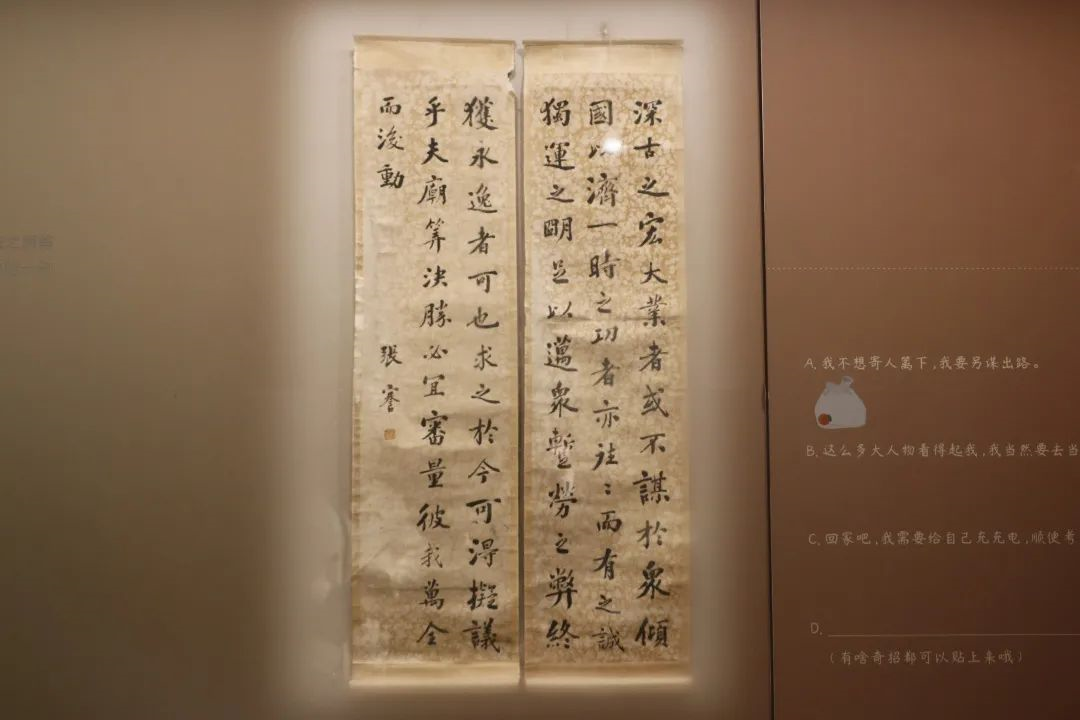 深古之宏大業者或不謀於衆傾
國以濟一時之功者亦往〻而有之誠
獨運之明足以邁衆蹔勞之弊終
獲永逸者可也求之於今可得擬議
乎夫廟筭決勝必宜審量彼我萬全
而後動
張謇
A. 我不想寄人篱下，我要另谋出路。
B. 这么多大人物看得起我，我当然要去当
C. 回家吧，我需要给自己充充电，顺便考
D.
（有啥奇招都可以贴上来哦）